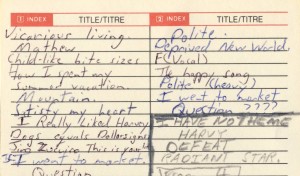 3 INDEX TITLE/TITRE
Vicarious living.
Mathew
Child-like bite sizes
How I spent my
summer vacation.
Mountain.
Satisfy my heart
I Really Liked Harvey
Dogs equals Dollarsigns
This is your
I want to market.
Question
3 INDEX TITLE/TITRE
Polite.
Deprived New World.
F(Vocal)
The happy song
Polite (heavy)
I went to market
Question ????
I HAVE NO THEME
HARVY
DEFEAT
RADIANT STAR.